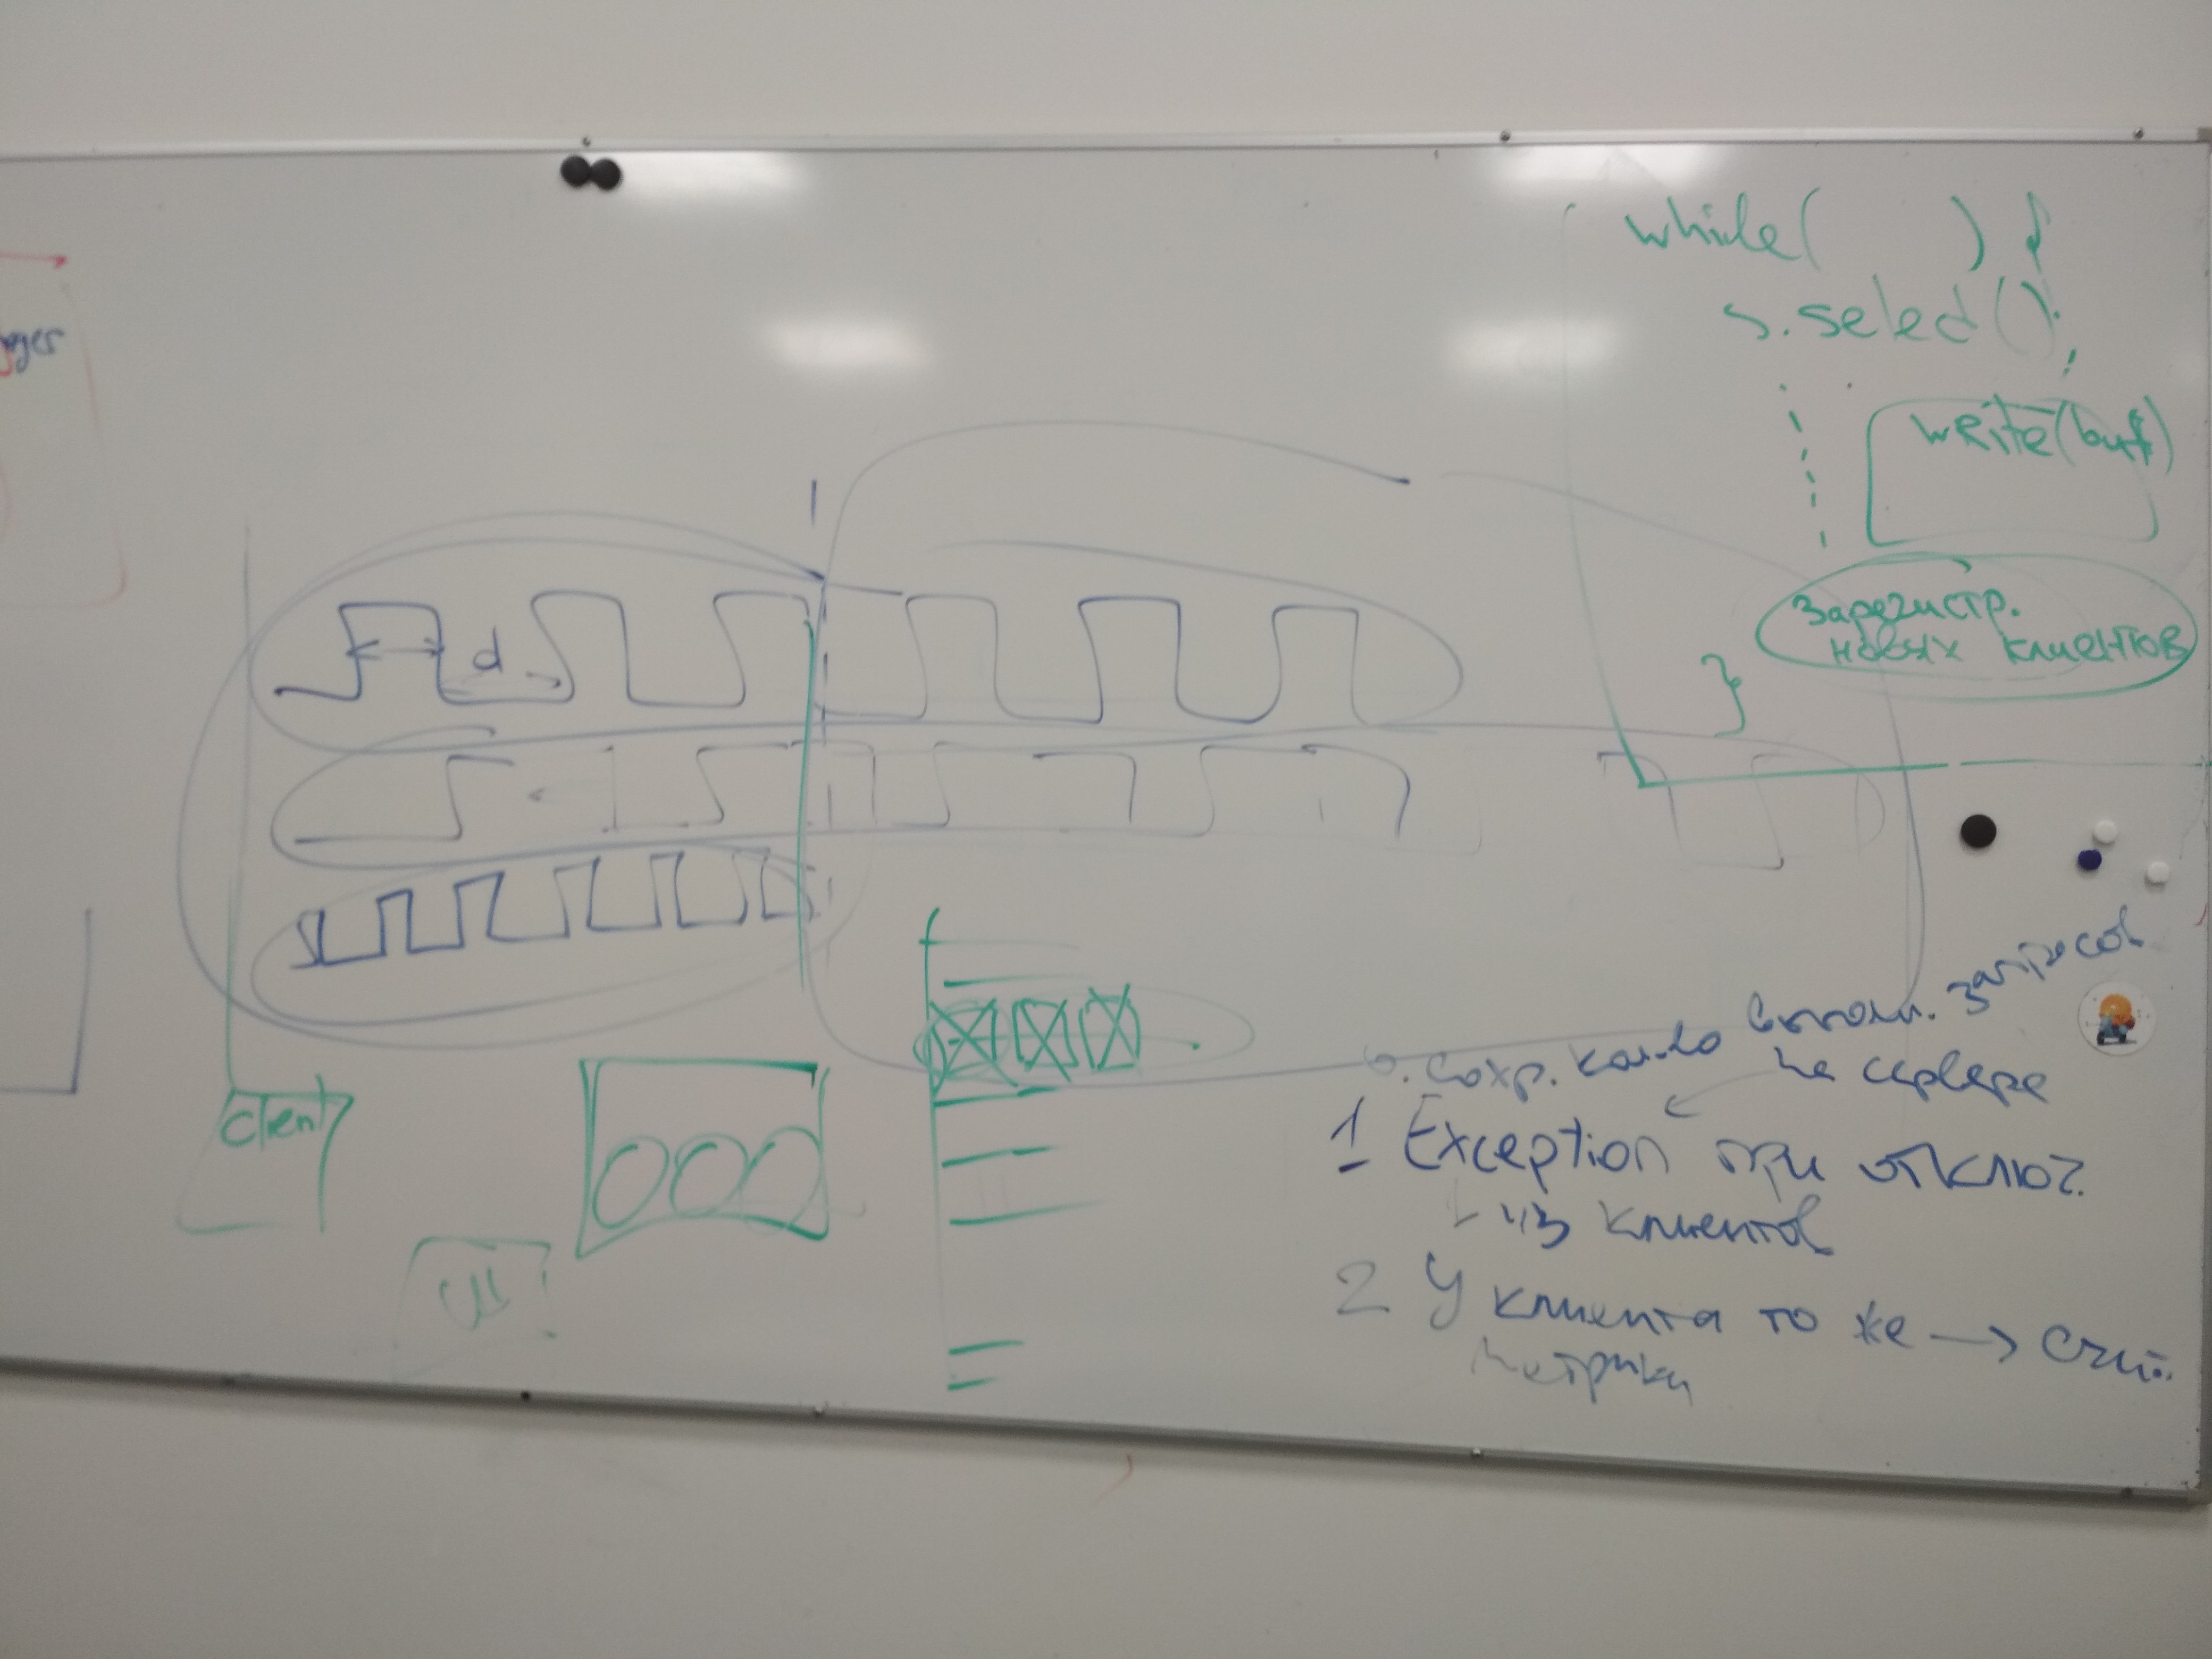 while( ) {
s.select();
write(buf)
Зарегистр.
новых клиентов
}
d
client
0. Сохр. кол-во выполн. запросов
на сервере
1 Exception при отключ.
1 из клиентов
2 У клиента то же →
метрики